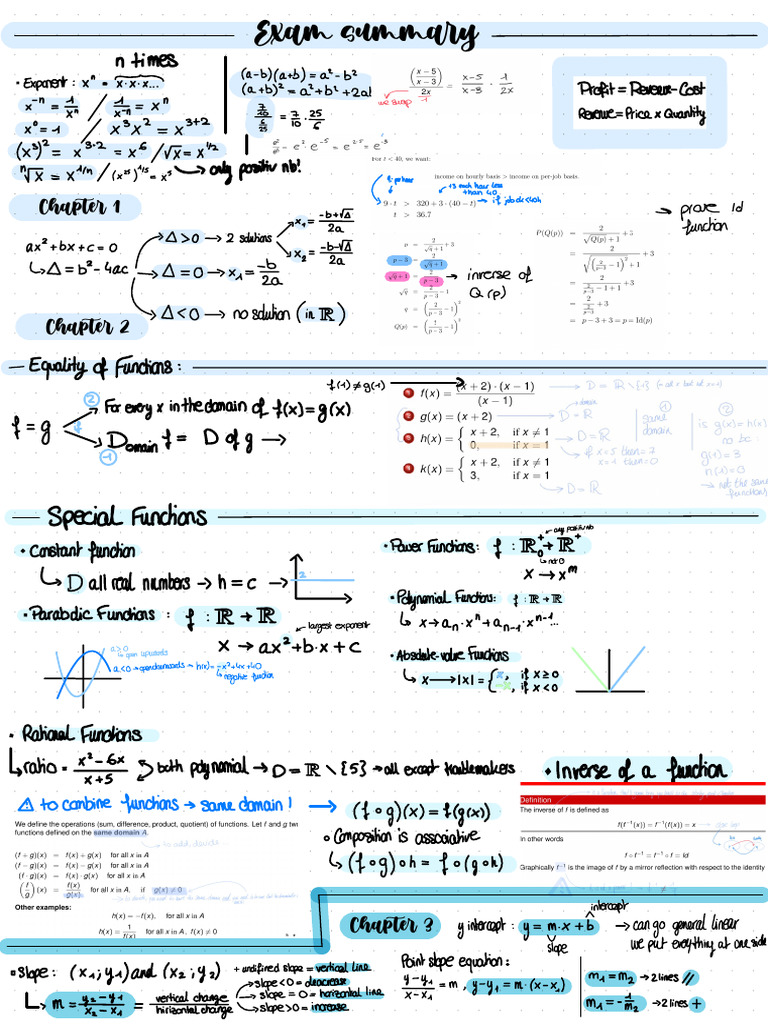 Exam summary
n times
• Exponent : xⁿ = x·x·x...
x⁻ⁿ = 1/xⁿ / 1/x⁻ⁿ = xⁿ
x⁰ = 1 / x³x² = x³⁺²
(x³)² = x³·² = x⁶ / √x = x^1/2
ⁿ√x = x^1/n / (x²⁵)^1/5 = x⁵ → only positiv nb!
(a-b)(a+b) = a² - b²
(a+b)² = a² + b² + 2a
(x − 5 / x − 3) / 2x = x-5 / x-3 · 1 / 2x
we swap 1
7/10 / 6/25 = 7/10 · 25/6
= e² · e⁻⁵ = e²⁻⁵ = e⁻³
Profit = Revenue - Cost
Revenue = Price x Quantity
For t < 40, we want:
income on hourly basis > income on per-job basis.
+3 each hour less than 40
9 · t > 320 + 3 · (40 − t) → if job de < 40h
t > 36.7
Chapter 1
ax² + bx + c = 0
↳ Δ = b² - 4ac
Δ > 0 → 2 solutions
x₁ = -b+√Δ / 2a
x₂ = -b-√Δ / 2a
Δ = 0 → x₁ = -b / 2a
Δ < 0 → no solution (in ℝ)
p = 2/(√q + 1) + 3
p − 3 = 2/(√q + 1)
√q + 1 = 2/(p − 3)
√q = 2/(p − 3) − 1
q = (2/(p − 3) − 1)²
Q(p) = (2/(p − 3) − 1)²
→ inverse of Q(p)
→ prove Id function
P(Q(p)) = 2/(√Q(p) + 1) + 3
= 2/(√(2/(p−3) − 1)² + 1) + 3
= 2/(2/(p−3) − 1 + 1) + 3
= 2/(2/(p−3)) + 3
= p − 3 + 3 = p = Id(p)
Chapter 2
Equality of Functions :
f = g
② For every x in the domain of f(x) = g(x)
① Domain f = D of g →
f(1) ≠ g(1)
1 f(x) = (x + 2) · (x − 1) / (x − 1) → D = ℝ \ {1}
2 g(x) = (x + 2) → D = ℝ
3 h(x) = { x + 2, if x ≠ 1
0, if x = 1 → D = ℝ
if x = 5 then = 7
x = 1 then = 0
4 k(x) = { x + 2, if x ≠ 1
3, if x = 1 → D = ℝ
① same domain
② is g(x) = h(x)
no bc
g(1) = 3
h(1) = 0
→ not the same functions
Special Functions
• Constant function
↳ D all real numbers → h = c →
2
• Parabolic Functions : f : ℝ → ℝ
x → ax² + b·x + c
← largest exponent
a > 0
↳ open upwards
a < 0 → open downwards → h(x) = -x² + 4x + 40
↳ negative function
• Power Functions: f : ℝ₀⁺ → ℝ⁺
↳ not 0
x → xᵐ
• Polynomial Function: f : ℝ → ℝ
↳ x → aₙ·xⁿ + aₙ₋₁·xⁿ⁻¹...
• Absolute-value Functions
↳ x → |x| = { x, if x ≥ 0
-x, if x < 0
• Rational Functions
↳ ratio = x² - 6x / x + 5 both polynomial → D = ℝ \ {5} → all except troublemakers
• Inverse of a function
⚠ to combine functions → same domain !
We define the operations (sum, difference, product, quotient) of functions. Let f and g two
functions defined on the same domain A.
(f + g)(x) = f(x) + g(x) for all x in A
(f − g)(x) = f(x) − g(x) for all x in A
(f · g)(x) = f(x) · g(x) for all x in A
(f/g)(x) = f(x)/g(x) for all x in A, if g(x) ≠ 0
Other examples:
h(x) = −f(x), for all x in A
h(x) = 1/f(x) for all x in A, f(x) ≠ 0
→ (f ∘ g)(x) = f(g(x))
• Composition is associative
↳ (f ∘ g) ∘ h = f ∘ (g ∘ h)
Definition
The inverse of f is defined as
f(f⁻¹(x)) = f⁻¹(f(x)) = x
In other words
f ∘ f⁻¹ = f⁻¹ ∘ f = Id
Graphically f⁻¹ is the image of f by a mirror reflection with respect to the identity
Chapter 3
y intercept : y = m·x + b
intercept
slope
→ can go general linear
we put everything at one side
• Slope : (x₁ ; y₁) and (x₂ ; y₂)
↳ m = y₂ - y₁ / x₂ - x₁ = vertical change / hirizontal change
+ undifined slope = vertical line
→ slope < 0 = deacrease
→ slope = 0 = horizontal line
→ slope > 0 = increase
Point slope equation :
y - y₁ / x - x₁ = m , y - y₁ = m · (x - x₁)
m₁ = m₂ → 2 lines //
m₁ = -1/m₂ → 2 lines +